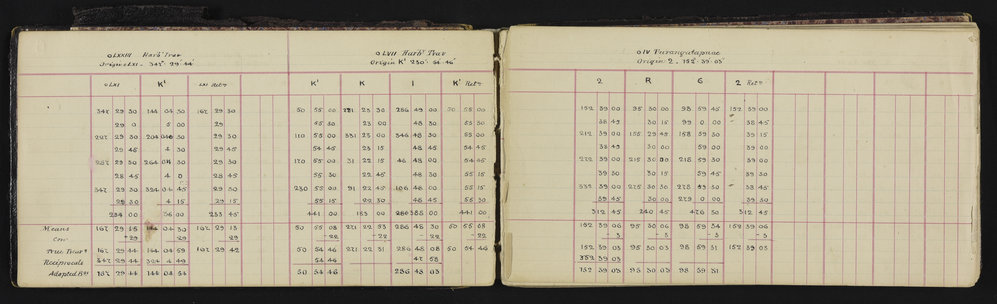 oLXXIII Harbr Trav
Origin oLXI - 347° 29' 44"
oLVII Harbr Trav
Origin K' 230° 54' 46"
oIV Purangatapuae
Origin 2. 152° 39' 03"
oLXI K' LXI Retn
K' K I K' Retn
2 R G 2 Retn
347 29 30 144 04 30 167 29 30
50 55 00 221 23 30 286 49 00 50 55 00
152 39 00 95 30 00 98 59 45 152 39 00
29 0 5 00 29
45 30 23 00 48 30 55 30
38 45 30 15 99 0 00 38 45
29 30 204 04 30 29 30
110 55 00 331 23 00 346 48 30 55 00
212 39 00 155 29 45 158 59 30 39 15
29 45 4 30 29 45
54 45 23 15 48 45 54 45
38 45 30 00 59 00 39 00
29 30 264 04 30 29 30
170 55 00 31 22 15 46 48 00 54 45
272 39 00 215 30 00 218 59 30 39 00
28 45 4 0 28 45
55 30 22 45 48 30 55 15
39 30 30 15 59 45 39 30
347 29 30 324 04 45 29 30
230 55 00 91 22 45 106 48 00 55 15
332 39 00 275 30 30 278 59 30 38 45
29 30 4 15 29 15
55 15 22 30 48 45 55 30
39 45 30 00 279 0 00 39 30
234 00 36 00 233 45
441 00 183 00 385 00 441 00
312 45 240 45 476 30 312 45
Means 167 29 15 144 04 30 167 29 13
50 55 08 221 22 53 286 48 30 50 55 08
152 39 06 95 30 06 98 59 34 152 39 06
Corr +29 29 29
-22 -22 -22 -22
-3 -3 -3
True Bear 167 29 44 144 04 59 167 29 42
50 54 46 221 22 31 286 48 08 50 54 46
152 39 03 95 30 03 98 59 31 152 39 03
Reciprocals 347 29 44 324 4 49
54 46 47 58
332 39 03
Adopted Bgs 167 29 44 144 04 54
50 54 46 286 48 03
152 39 03 95 30 03 98 59 31